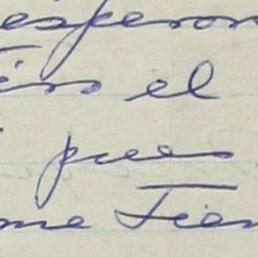 esperom
el
pues
me Tien